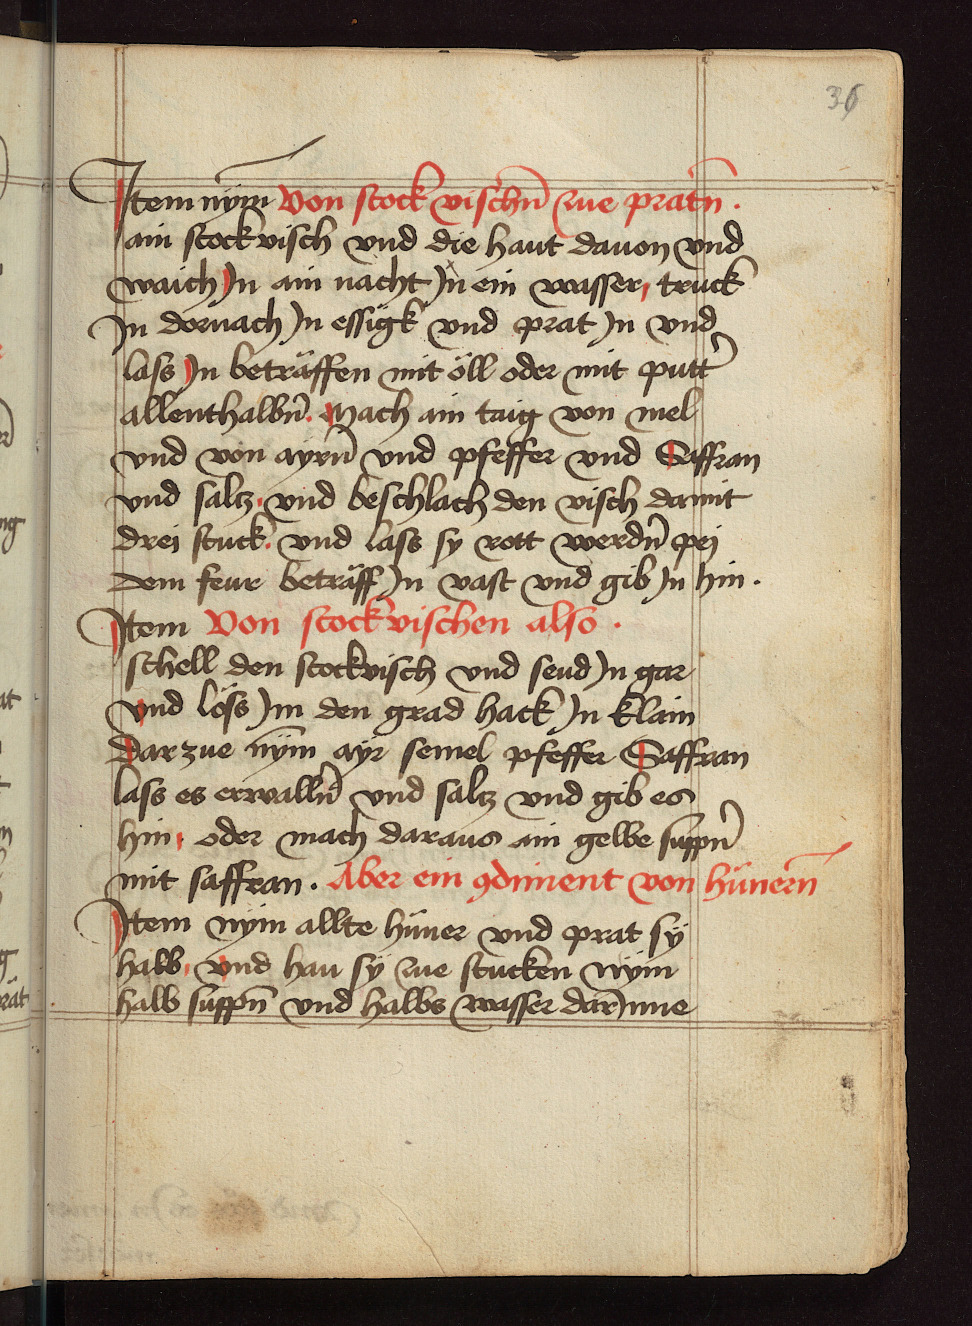 36
Item nym Von stockvischn zue pratn .
ain stockvisch vnd die haut dauon vnd
waich Jn ain nacht Jn ein wasser, truck
Jn dornach Jn essigk vnd prat Jn vnd
lass Jn beträffen mit öll oder mit putter
allenthalbn. Mach ain taig von mel
vnd von ayrn vnd pfeffer vnd Saffran
vnd saltz. vnd beschlach den visch damit
drei stuck. vnd lass sy rott werdn pej
dem feur beträff Jn vast vnd gib Jn hin .
Item Von stockvischen also .
schell den stockvisch vnd send Jn gar
vnd lös Jm den grad hack Jn klain
Darzue nym ayr semel pfeffer Saffran
lass es erwalln vnd saltz vnd gib es
hin, oder mach daraus ain gelbe suppn
mit saffran . Aber ein 9diment von hünern
Item nym allte hüner vnd prat sy
halb, vnd hau sy zue stucken nym
halb suppn vnd halbs wasser darJnne